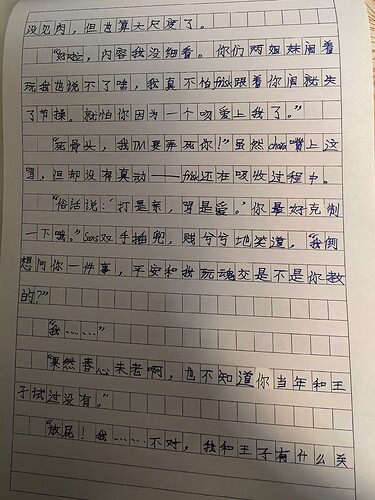 没见肉，但也算大尺度了。
“好啦，内容我没细看。你们两姐妹闹着
玩我也说不了啥，我真不怕frisk跟着你闹就失
了节操。就怕你因为一个吻爱上我了。”
“死骨头，我TM要弄死你！”虽然chara嘴上这
骂，但却没有真动——frisk还在吸收过程中。
“俗话说：‘打是亲，骂是爱。’你最好克制
一下哦。”Sans双手插兜，贱兮兮地笑道，“我倒
想问你一件事，平安和我玩魂交是不是你教
的？”
“我……”
“果然春心未老啊，也不知道你当年和王
子试过没有。”
“放屁！我……不对，我和王子有什么关